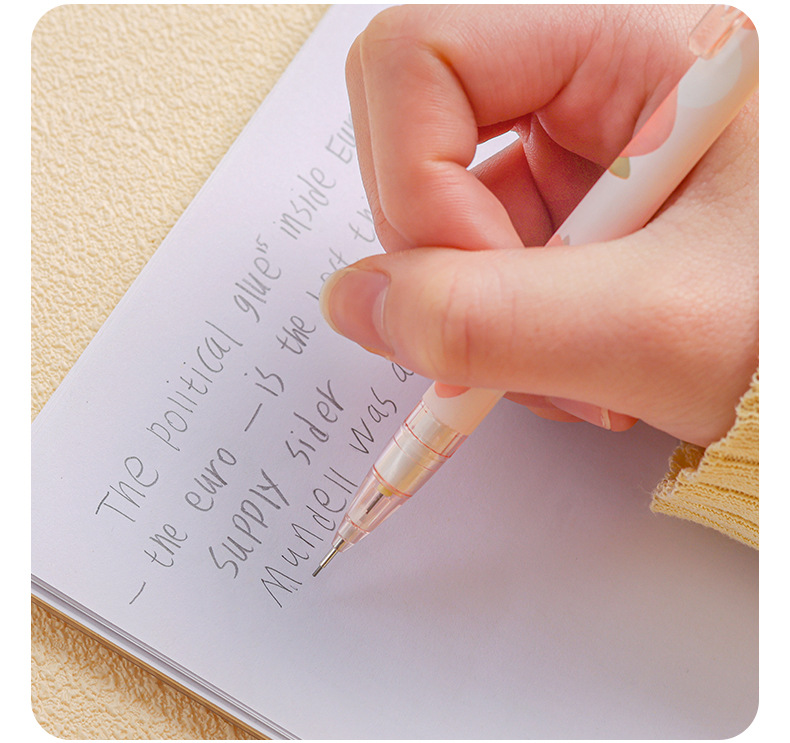 The political glue" inside Eur
– the euro – is the best th
Supply sider
Mundell was a